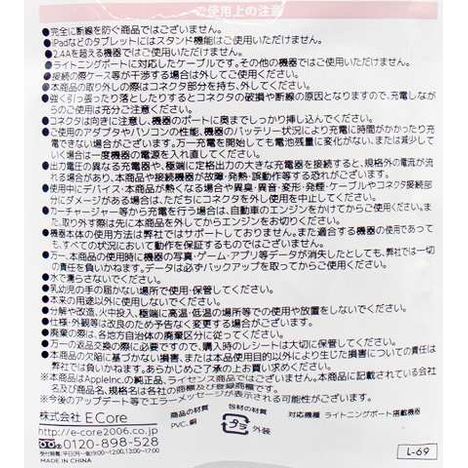 ご使用上の注意
●完全に断線を防ぐ商品ではございません。
●iPadなどのタブレットにはスタンド機能はご使用いただけません。
●2.4Aを超える機器ではご使用いただけません。
●ライトニングポートに対応したケーブルです。その他の機器ではご使用いただけません。
●接続の際ケース等が干渉する場合は外してご使用ください。
●本商品の取り外しの際はコネクタ部分を持ち、外してください。
●強く引っ張ったり落としたりするとコネクタの破損や断線の原因となりますので、充電しながら
のご使用は充分ご注意ください。
●コネクタは向きに注意し、機器のポートに奥までしっかり挿し込んでください。
●ご使用のアダプタやパソコンの性能、機器のバッテリー状況により充電に時間がかかったり充
電できない場合がございます。万一充電を開始しても電池残量に変化がない、または減少して
いく場合は一度機器の電源を入れ直してください。
●出力電圧の異なる充電器や、極端に定格出力の大きな充電器を接続すると、規格外の電流が流
れる場合があり、本商品や接続機器が故障・発熱・誤動作等する恐れがございます。
●使用中にデバイス・本商品が熱くなる場合や異臭・異音・変形・発煙・ケーブルやコネクタ接続部
分にダメージがある場合は、ただちにコネクタを外し使用を中止してください。
●カーチャージャー等から充電を行う場合は、自動車のエンジンをかけてからご使用ください。ま
た、取り外す際は先に本商品を外してからエンジンをお切りください。
●機器本体の使用方法は弊社ではサポートしておりません。また適合する機器の使用であって
も、すべての状況において動作を保証するものではございません。
●万一、本商品の使用時に機器の写真・ゲーム・アプリ等データが消失したとしても、弊社では一切
の責任を負いかねます。データは必ずバックアップを取ってからご使用ください。
●水で濡らさないでください。
●乳幼児の手の届かない場所で使用・保管してください。
●本来の用途以外に使用しないでください。
●分解や改造、火中投入、極端に高温・低温の場所等での使用や放置をしないでください。
●仕様・外観等は改良のため予告なく変更する場合がございます。
●廃棄の際は、各地方自治体の廃棄区分に従ってください。
●万一の返品交換の際に必要ですので、購入時のレシートは大切に保管してください。
●本商品の欠陥に基づかない損害、または本商品使用目的以外により生じた損害についての責任は
弊社では負いかねます。あらかじめご了承の上お買い求めください。
※本商品はAppleInc.の純正品、ライセンス商品ではございません。本商品に記載されている会社
名及び商品名、規格名は各社の商標及び登録商標です。
※今後のアップデート等でエラーメッセージが表示される可能性がございます。
株式会社 E Core
http://e-core2006.co.jp
0120-898-528
MADE IN CHINA
商品の材質
PVC、銅
包材の材質
タケ 外装
対応機種 ライトニングポート搭載機器
L-69